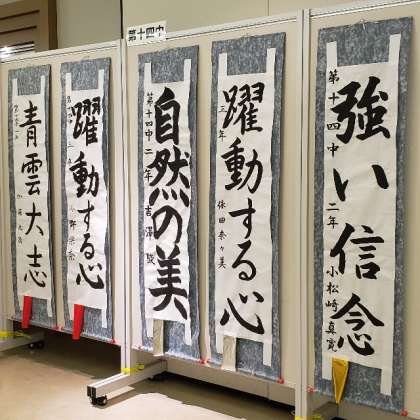 第十四中
強い信念
第十四中 二年 小松崎真寛
躍動する心
三年 依田奈々美
自然の美
第十四中二年 吉澤
躍動する心
青雲大志